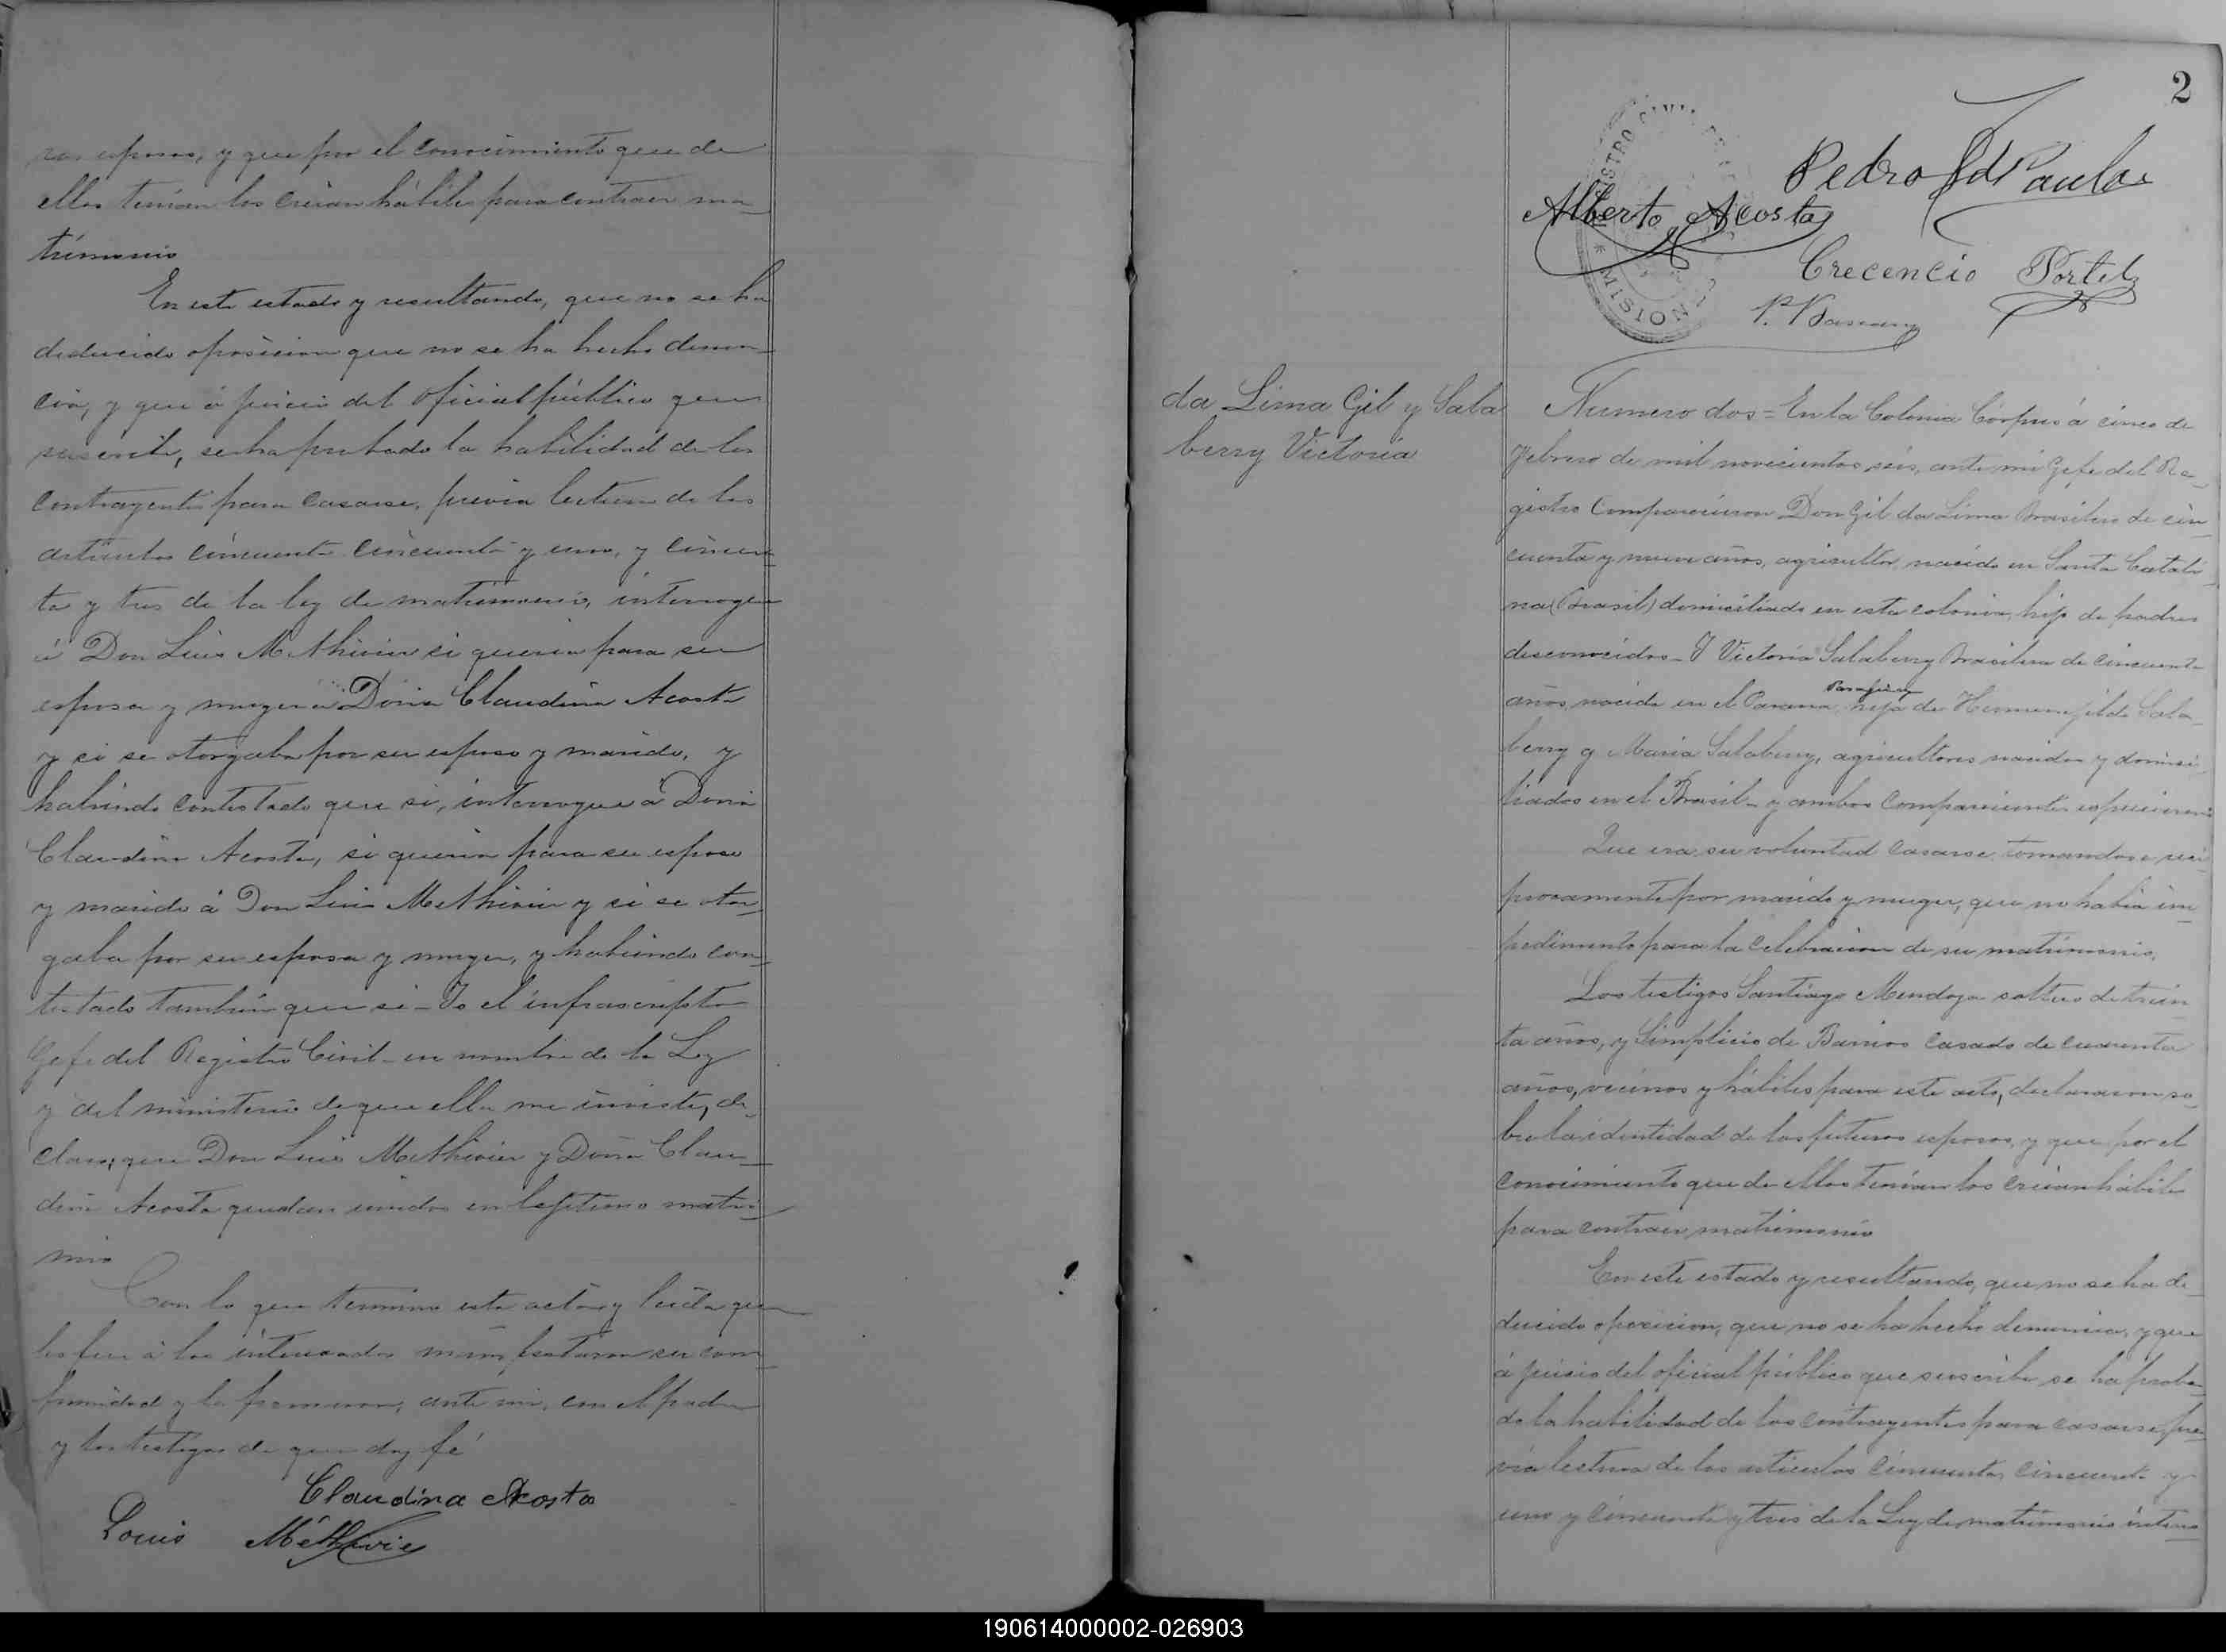 ros esposos, y que por el conocimiento que de
ellos tenian los creian hábiles para contraer ma_
trimonio
En este estado y resultando, que no se ha
deducido oposicion que no se ha hecho denun_
cia, y que á juicio del oficial público que
suscribe, se ha probado la habilidad de los
contrayentes para casarse, previa lectura de los
articulos cincuenta cincuenta y uno, y cincuen_
ta y tres de la ley de matrimonio, interrogue
á Don Luis Methivier si queria para su
esposa y muger a Doña Claudina Acosta
y si se otorgaba por su esposo y marido, y
habiendo contestado que si, interrogue á Doña
Claudina Acosta, si queria para su esposo
y marido á Don Luis Methivier y si se otor_
gaba por su esposa y muger, y habiendo con_
testado tambien que si _ Yo el infrascripto
Gefe del Registro Civil _ en nombre de la Ley
y del ministerio de que ella me inviste, de_
claro, que Don Luis Methivier y Doña Clau_
dina Acosta quedan unidos en lejitimo matri_
mio
Con lo que termino esta acta y leida que
les fue á los interesados manifestaron su con_
formidad y la firmaron, ante mi, con el padre
y los testigos de que doy fé
Claudina Acosta
Louis Méthivier
2
Pedro Paula
Alberto Acosta
Crecencio Portel
MISION
da Lima Gil y Sala
berry Victoria
Numero dos = En la Colonia Córpus á cinco de
Febrero de mil novecientos seis, ante mi Gefe del Re_
gistro Comparecieron Don Gil da Lima Brasilero de cin_
cuenta y nueve años, agricultor nacido en Santa Catali_
na (Brasil) domiciliado en esta colonia, hijo de padres
desconocidos _ Y Victoria Salaberry Brasilera de cincuenta
años nacida en el Parana, hija de Hermenejildo Sala_
berry y Maria Salaberry, agricultores nacidos y domici_
liados en el Brasil _ y ambos comparecientes espusieron
Que era su voluntad casarse tomandose reci_
procamente por marido y muger, que no habia im_
pedimento para la celebracion de su matrimonio.
Los testigos Santiago Mendoza soltero de trein_
ta años, y Simplicio de Barrios casado de cuarenta
años, vecinos y hábiles para este acto, declararon so_
bre la identidad de los futuros esposos, y que por el
conocimiento que de ellos tenian los creian hábiles
para contraer matrimonio
En este estado y resultando, que no se ha de_
ducido oposicion, que no se ha hecho denuncia, y que
á juicio del oficial público que suscribe se ha proba_
do la habilidad de los contrayentes para casarse, pre_
via lectura de los articulos cincuenta, cincuenta y
uno y cincuenta y tres de la Ley de matrimonio interro_
190614000002-026903